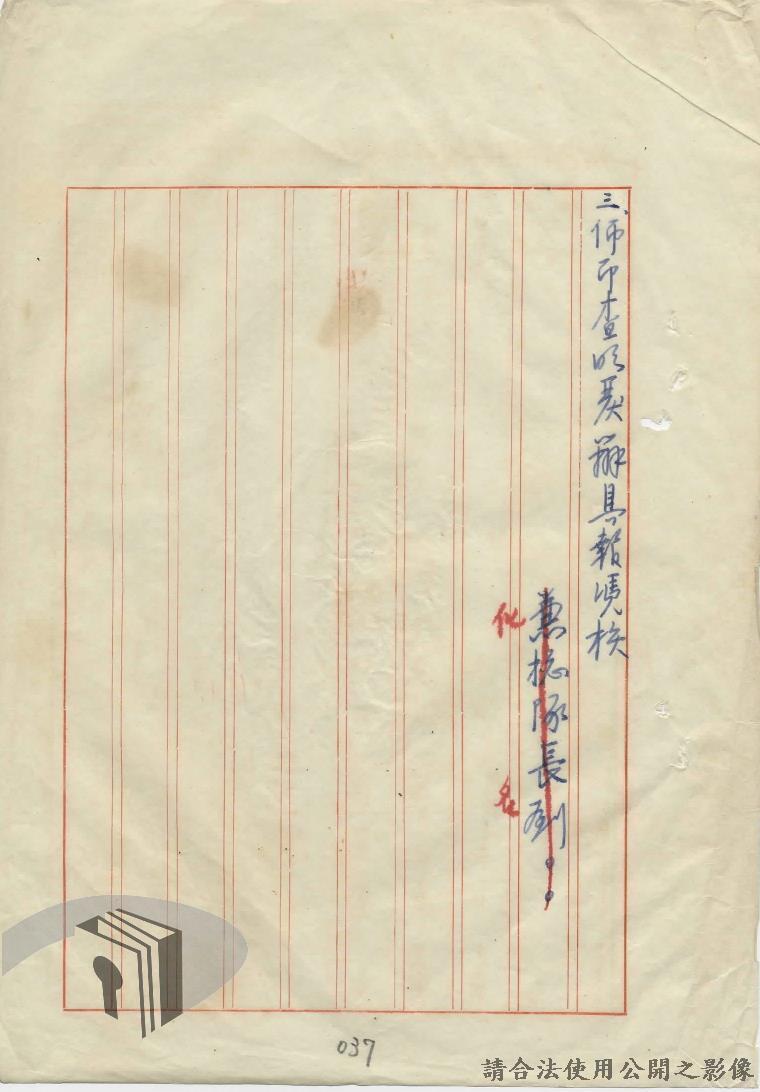 三、仰即查明具辦具報憑核
兼總隊長劉○○
化 名
037
請合法使用公開之影像